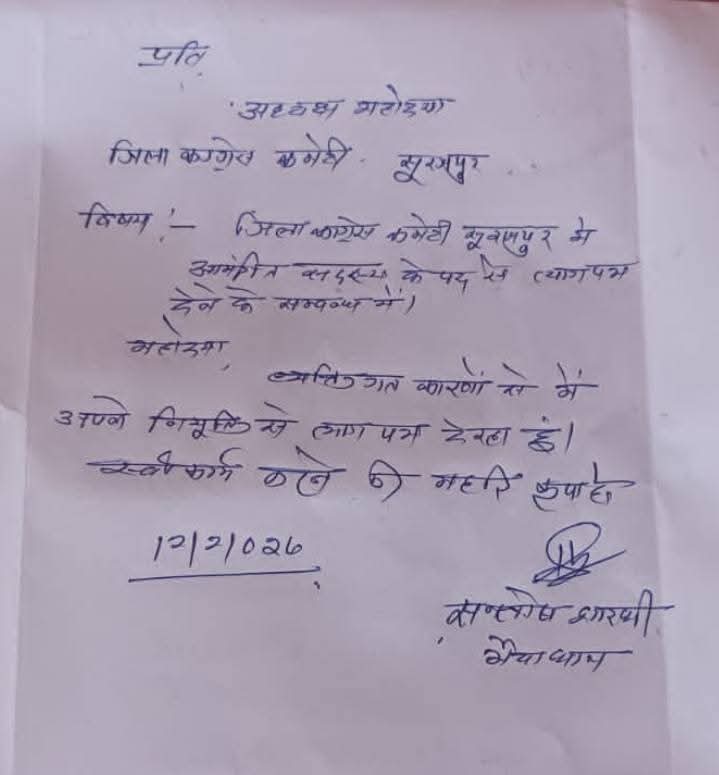 प्रति,
अध्यक्ष महोदया
जिला कांग्रेस कमेटी सूरजपुर
विषय :- जिला कांग्रेस कमेटी सूरजपुर में
आमंत्रित सदस्य के पद से त्यागपत्र
देने के सम्बन्ध में।
महोदया,
व्यक्तिगत कारणों से मैं
अपने नियुक्ति से त्याग पत्र दे रहा हूं।
करने की महति कृपा हो
12/2/026
सन्तोष सारथी
भैयाथान